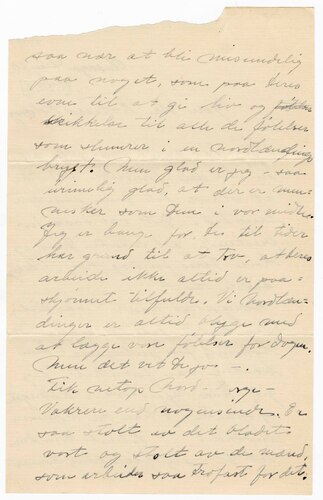 saa nær at bli misundelig
paa noget, som paa Deres
evne til at gi liv og
skikkelse til alle de følelser
som slumrer i en nordlændings
bryst. Men glad er jeg — saa
urimelig glad, at der er men-
nesker som Dem i vor midte.
Jeg er bange for De til tider
har grund til at tro, at Deres
arbeide ikke altid er paa-
skjønnet tilfulde. Vi nordlæn-
dinger er altid blyge med
at lægge vore følelser for dagen.
Men det vet De jo —.
Fik netop Nord-Norge —
Vakrere end nogensinde. Er
saa stolt av det bladet
vort og stolt av de mænd,
som arbeider saa trofast for det.